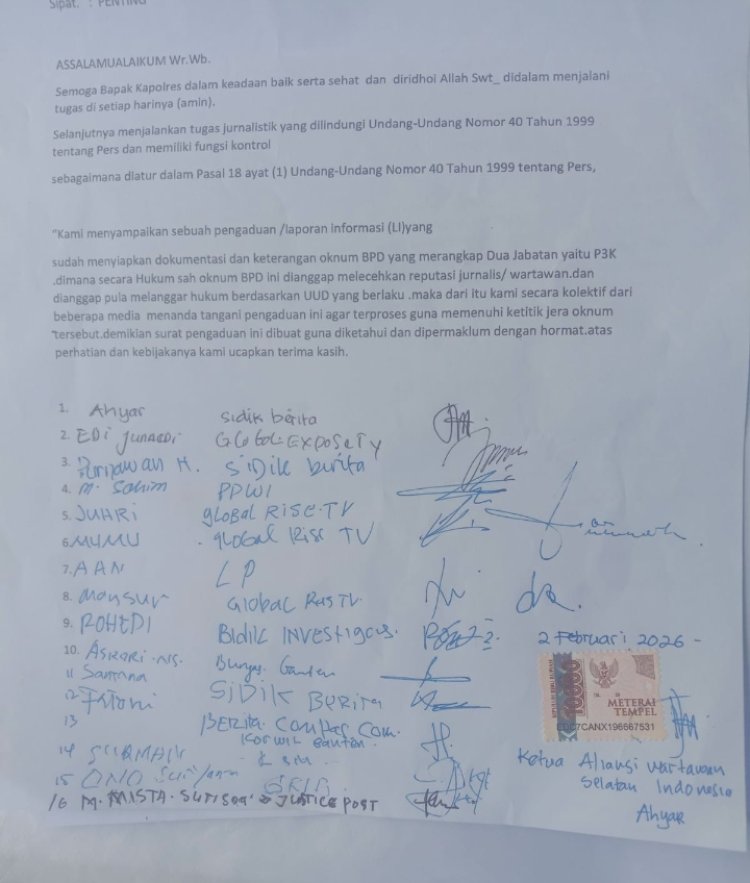 Sipat. : PENTING
ASSALAMUALAIKUM Wr.Wb.
Semoga Bapak Kapolres dalam keadaan baik serta sehat dan diridhoi Allah Swt_ didalam menjalani
tugas di setiap harinya (amin).
Selanjutnya menjalankan tugas jurnalistik yang dilindungi Undang-Undang Nomor 40 Tahun 1999
tentang Pers dan memiliki fungsi kontrol
sebagaimana diatur dalam Pasal 18 ayat (1) Undang-Undang Nomor 40 Tahun 1999 tentang Pers,
"Kami menyampaikan sebuah pengaduan /laporan informasi (LI)yang
sudah menyiapkan dokumentasi dan keterangan oknum BPD yang merangkap Dua Jabatan yaitu P3K
.dimana secara Hukum sah oknum BPD ini dianggap melecehkan reputasi jurnalis/ wartawan.dan
dianggap pula melanggar hukum berdasarkan UUD yang berlaku .maka dari itu kami secara kolektif dari
beberapa media menanda tangani pengaduan ini agar terproses guna memenuhi ketitik jera oknum
tersebut.demikian surat pengaduan ini dibuat guna diketahui dan dipermaklum dengan hormat.atas
perhatian dan kebijakanya kami ucapkan terima kasih.
1. Ahyar sidik berita
2. EDi JUNAEDI GLObal EXPOSE TV
3. H. SiDik berita
4. M. Sahim PPWI
5. JUHRi gLOBAL RISE.TV
6. MUMU gLOBAL Rise TV
7. AAN LP
8. Mansur GLOBAL TV
9. ROHEDI Bidik INVESTIGASI.
10. ASRARI
11 Santana
12 FAToni SiDiK BERITA
13 BERita Com
Korwil banten
14 SURMAN
15 ONO
16 M. MISTA. JUSTICE POST
2 Februari 2026 -
10000
METERAI
TEMPEL
CANX196667531
Ketua Aliansi wartawan
Selatan Indonesia
Ahyar